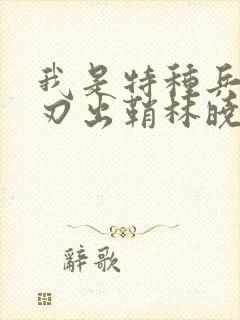 我是特種兵
刃出鞘林曉
辭歌